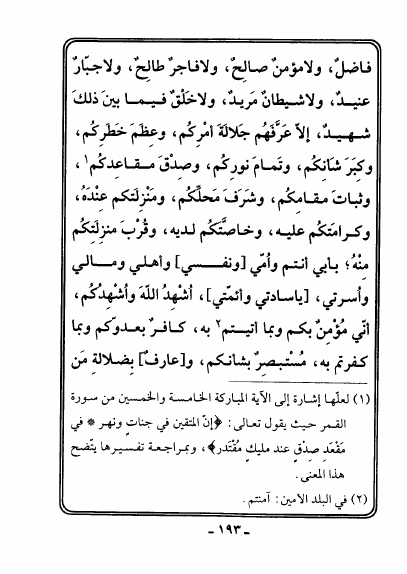 فاضلٌ، ولامؤمنٌ صالحٌ، ولافاجرٌ طالحٌ، ولاجبّارٌ
عنيدٌ، ولاشيطانٌ مَريدٌ، ولاخَلْقٌ فيما بينَ ذلكَ
شهيدٌ، إلاّ عَرَّفَهُم جَلالَةَ أمْرِكُم، وعِظَمَ خَطَرِكُم،
وكِبَرَ شأنِكُم، وتَمامَ نورِكُم، وصِدْقَ مقاعدِكُم١،
وثباتَ مقامِكُم، وشَرَفَ مَحلِّكُم، ومَنْزِلَتكم عِنْدَهُ،
وكرامَتَكُم عليه، وخاصَّتَكُم لديه، وقُرْبَ منزلَتِكُم
مِنْهُ؛ بأبي أنتم وأُمّي [ونفسي] وأهلي ومالي
وأُسرتي، [ياسادتي وأئمّتي]، أُشْهِدُ اللّهَ وأُشْهِدُكُم،
أنّي مُؤْمِنٌ بكم وبما اتيتم٢ به، كافرٌ بعدوّكم وبما
كفرتم به، مُسْتبصِرٌ بشانكم، و[عارفٌ] بِضلالةِ مَن
(١) لعلّها إشارة إلى الآية المباركة الخامسة والخمسين من سورة
القمر حيث يقول تعالى: ﴿إنّ المتقين في جناتٍ ونهر * في
مَقْعَدِ صِدْقٍ عند مليكٍ مُقْتَدر﴾، وبمراجعة تفسيرها يتّضح
هذا المعنى.
(٢) في البلد الامين: آمنتم.
- ١٩٣ -